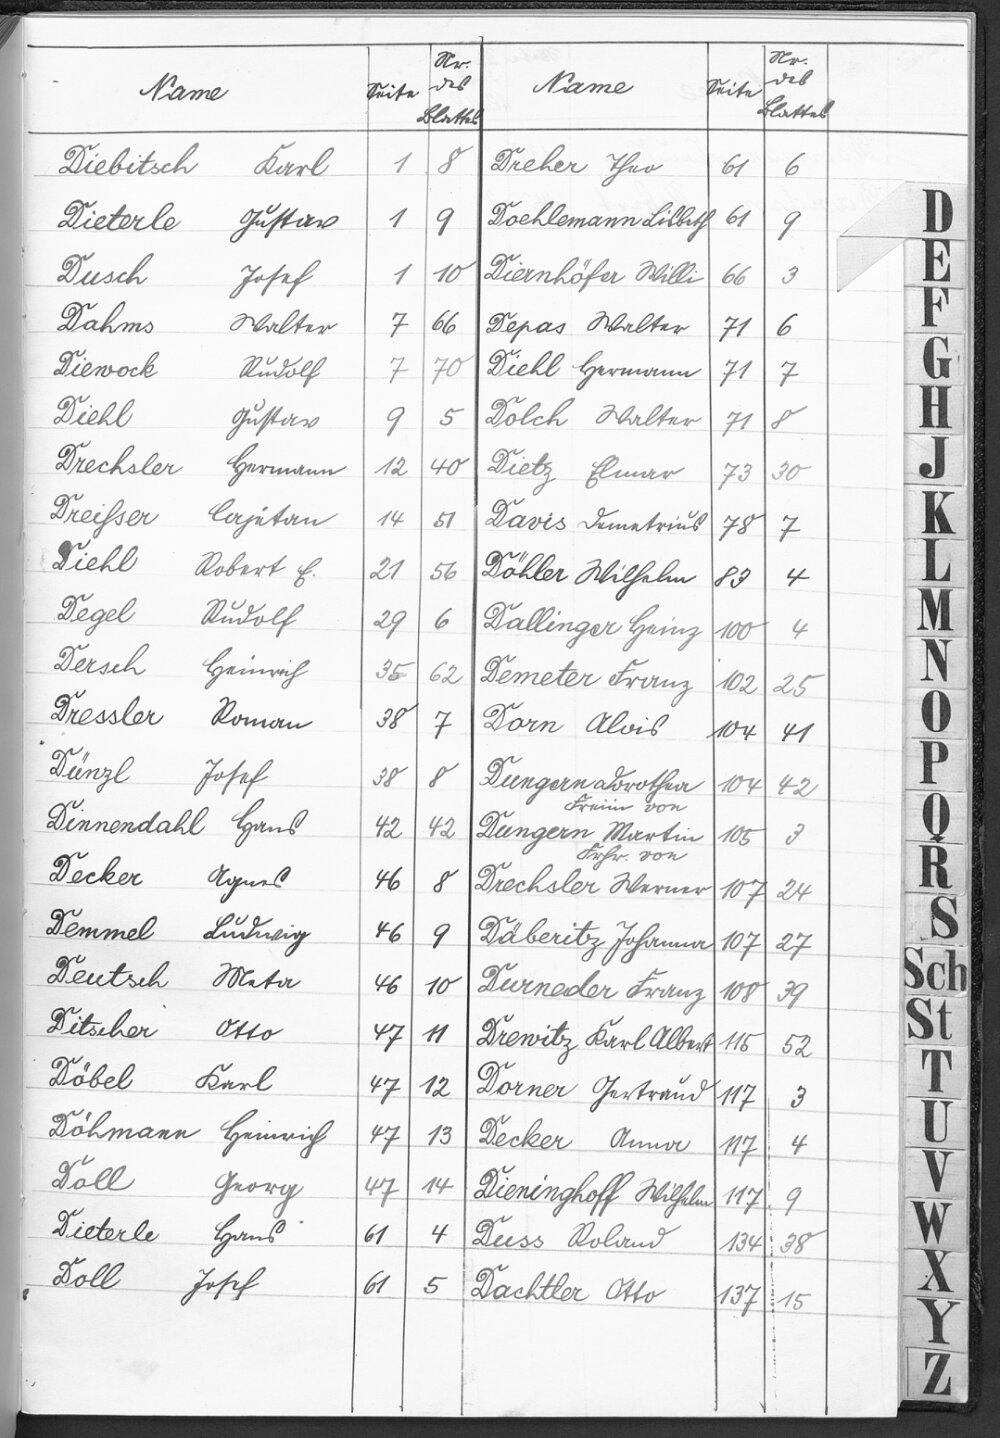 Name Seite Nr. des Blattes Name Seite Nr. des Blattes
Diebitsch Karl 1 8 Dreher Theo 61 6
Dieterle Gustav 1 9 Doehlemann Lisbeth 61 9
Dusch Josef 1 10 Diernhöfer Willi 66 3
Dahms Walter 7 66 Depas Walter 71 6
Diewock Rudolf 7 70 Diehl Hermann 71 7
Diehl Gustav 9 5 Dolch Walter 71 8
Drechsler Hermann 12 40 Dietz Elmar 73 30
Dreißer Cajetan 14 51 Davis Demetrius 78 7
Diehl Robert E. 21 56 Döhler Wilhelm 83 4
Degel Rudolf 29 6 Dallinger Heinz 100 4
Dersch Heinrich 35 62 Demeter Franz 102 25
Dressler Roman 38 7 Dorn Alois 104 41
Dünzl Josef 38 8 Dungern Dorothea 104 42
Freiin von
Dinnendahl Hans 42 42 Dungern Martin 105 3
Frhr. von
Decker Agnes 46 8 Drechsler Werner 107 24
Demmel Ludwig 46 9 Däberitz Johanna 107 27
Deutsch Meta 46 10 Durneder Franz 108 39
Ditscher Otto 47 11 Drewitz Karl Albert 115 52
Döbel Karl 47 12 Dorner Gertraud 117 3
Döhmann Heinrich 47 13 Decker Anna 117 4
Doll Georg 47 14 Dieninghoff Wilhelm 117 9
Dieterle Hans 61 4 Duss Roland 134 38
Doll Josef 61 5 Dachtler Otto 137 15
D
E
F
G
H
J
K
L
M
N
O
P
Q
R
S
Sch
St
T
U
V
W
X
Y
Z